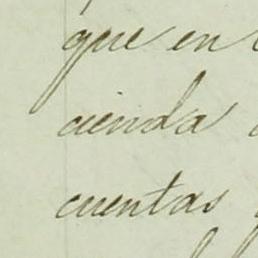 que en
cienda
cuentas